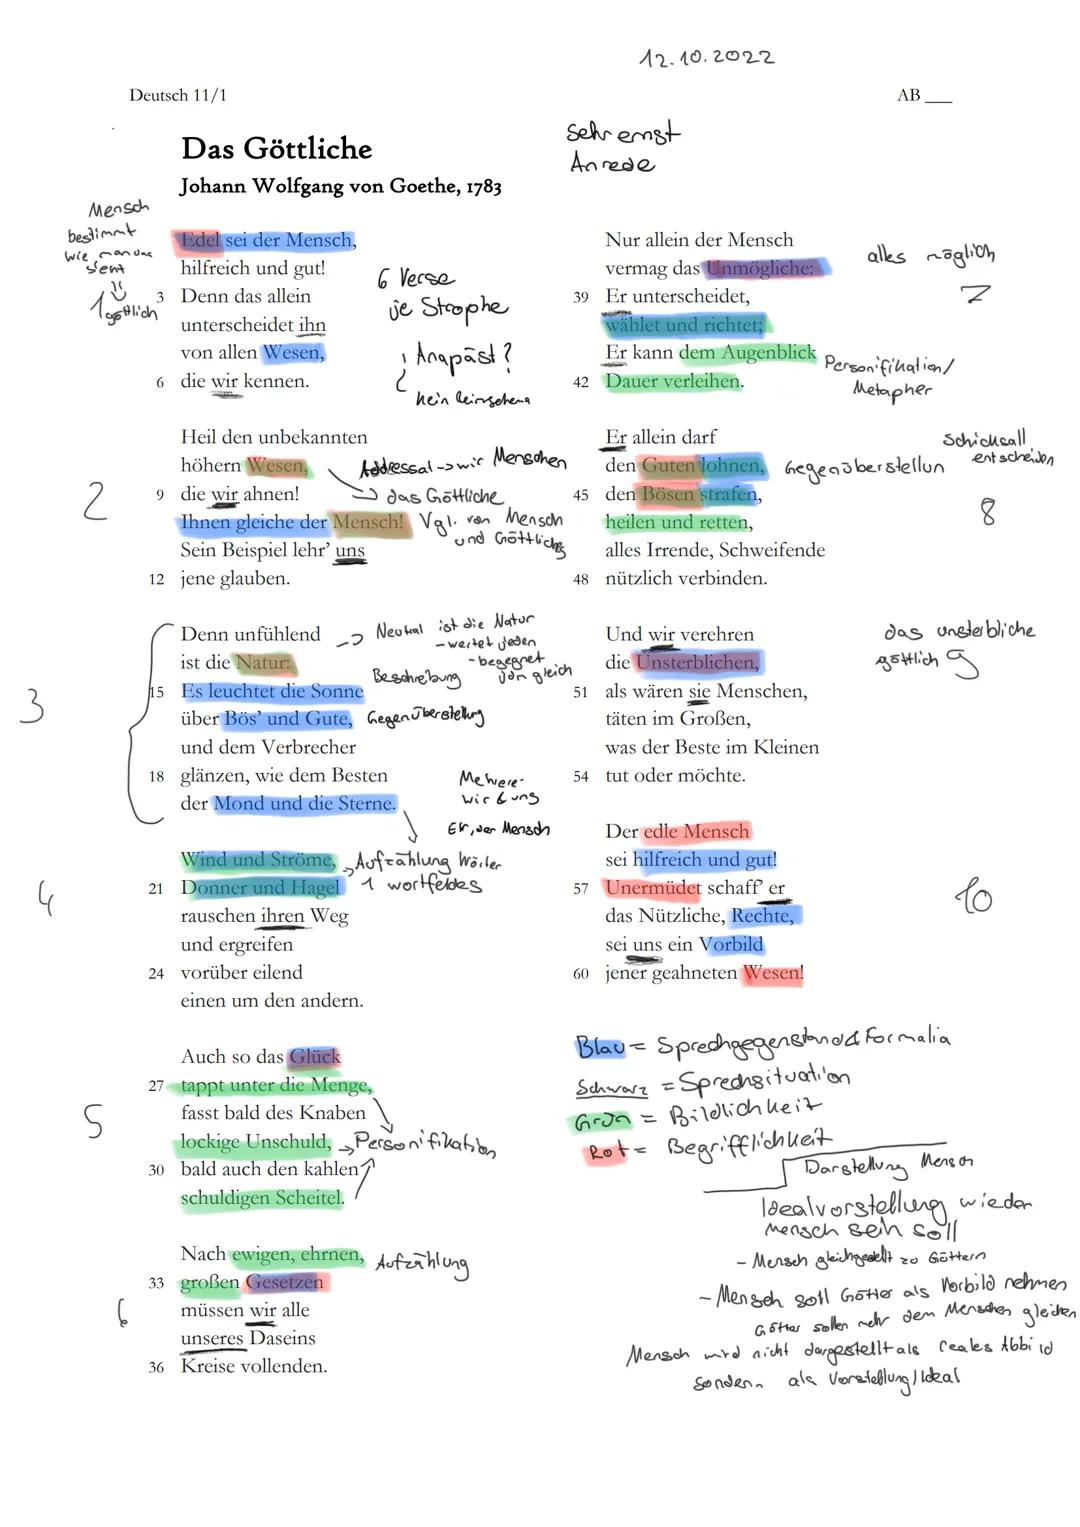 12.10.2022
Deutsch 11/1
AB ___
Das Göttliche
Johann Wolfgang von Goethe, 1783
sehr ernst
Anrede
Mensch
bestimmt
wie man das
göttlich
1
Edel sei der Mensch,
hilfreich und gut!
3 Denn das allein
unterscheidet ihn
von allen Wesen,
6 die wir kennen.
6 Verse
je Strophe
Anapäst?
kein Reimschema
2
Heil den unbekannten
höhern Wesen,
9 die wir ahnen!
Ihnen gleiche der Mensch!
Sein Beispiel lehr' uns
12 jene glauben.
Addressat -> wir Menschen
-> das Göttliche
Vgl. von Mensch
und Göttliches
3
Denn unfühlend
ist die Natur:
15 Es leuchtet die Sonne
über Bös' und Gute,
und dem Verbrecher
18 glänzen, wie dem Besten
der Mond und die Sterne.
-> Neutral ist die Natur
- wertet jeden
- begegnet
von gleich
Beschreibung
Gegenüberstellung
Mehrere-
wir & uns
Er, der Mensch
4
Wind und Ströme,
21 Donner und Hagel
rauschen ihren Weg
und ergreifen
24 vorüber eilend
einen um den andern.
-> Aufzählung Wörter
1 wortfeldes
5
Auch so das Glück
27 tappt unter die Menge,
fasst bald des Knaben
lockige Unschuld,
30 bald auch den kahlen
schuldigen Scheitel.
-> Personifikation
6
Nach ewigen, ehrnen,
33 großen Gesetzen
müssen wir alle
unseres Daseins
36 Kreise vollenden.
Aufzählung
Nur allein der Mensch
vermag das Unmögliche:
39 Er unterscheidet,
wählet und richtet;
Er kann dem Augenblick
42 Dauer verleihen.
alles möglich
7
Personifikation/
Metapher
Er allein darf
den Guten lohnen,
45 den Bösen strafen,
heilen und retten,
alles Irrende, Schweifende
48 nützlich verbinden.
Gegenüberstellun
Schicksall
entscheiden
8
Und wir verehren
die Unsterblichen,
51 als wären sie Menschen,
täten im Großen,
was der Beste im Kleinen
54 tut oder möchte.
das unsterbliche
göttlich
9
Der edle Mensch
sei hilfreich und gut!
57 Unermüdet schaff' er
das Nützliche, Rechte,
sei uns ein Vorbild
60 jener geahneten Wesen!
10
Blau = Sprechgegenstand & Formalia
Schwarz = Sprechsituation
Grün = Bildlichkeit
Rot = Begrifflichkeit
Darstellung Mensch
Idealvorstellung wie der
mensch sein soll
- Mensch gleichgestellt zu Göttern
- Mensch soll Götter als Vorbild nehmen
Götter sollen mehr dem Menschen gleichen
Mensch wird nicht dargestellt als reales Abbild
sondern als Vorstellung/Ideal